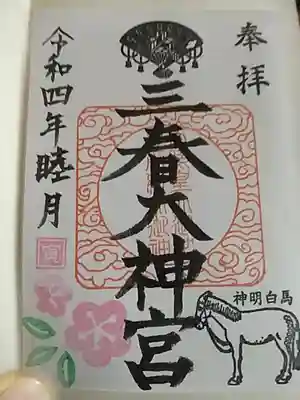 奉拝
三春大神宮
令和四年睦月
寅
神明白馬